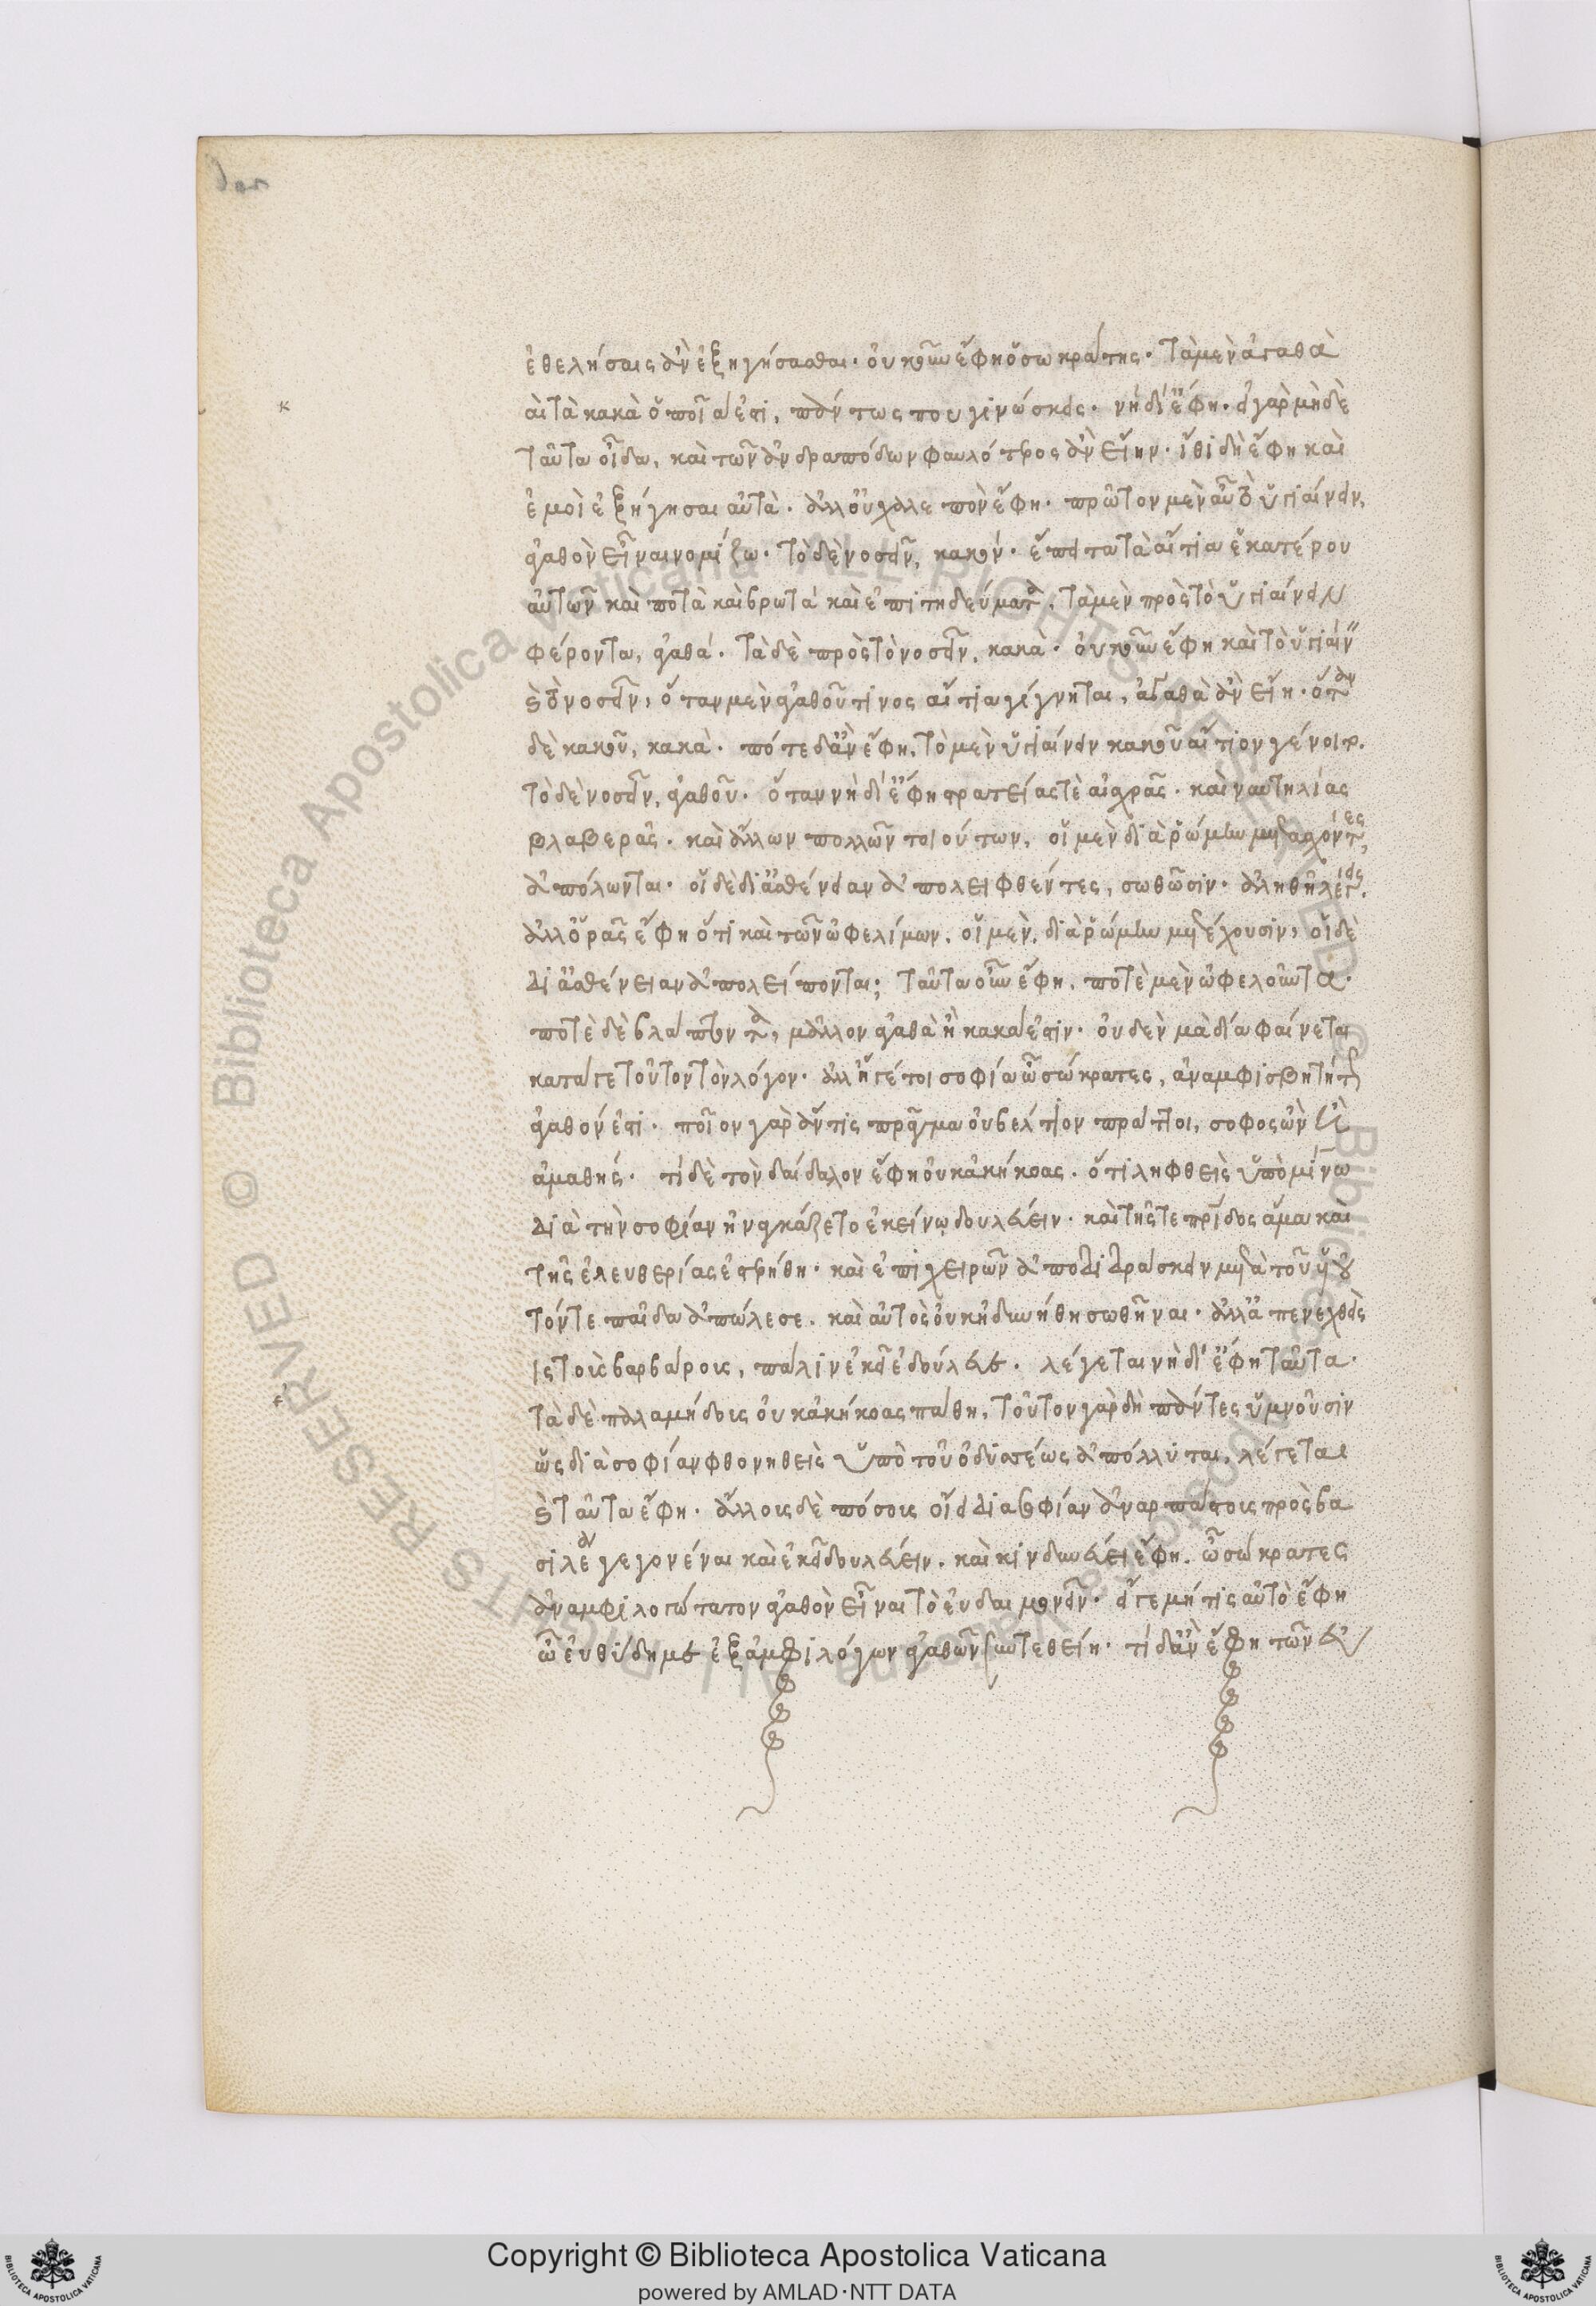 ἐθελήσαις ἂν ἐξηγήσασθαι· οὐκοῦν ἔφη ὁ σωκράτης· τὰ μὲν ἀγαθὰ
καὶ τὰ κακὰ ὁποῖά ἐστι, πάντως που γινώσκεις· νὴ δί ἔφη· εἰ γὰρ μὴδὲ
ταῦτα οἶδα, καὶ τῶν ἀνδραπόδων φαυλότερος ἂν εἴην· ἴθι δὴ ἔφη καὶ
ἐμοὶ ἐξήγησαι αὐτὰ· ἀλλ οὐ χαλεπὸν ἔφη· πρῶτον μὲν αὐτὸ ὑγιαίνειν,
ἀγαθὸν εἶναι νομίζω· τὸ δὲ νοσεῖν, κακόν· ἔπειτα τὰ αἴτια ἑκατέρου
αὐτῶν καὶ ποτὰ καὶ βρωτὰ καὶ ἐπιτηδεύματα, τὰ μὲν πρὸς τὸ ὑγιαίνειν
φέροντα, ἀγαθά· τὰ δὲ πρὸς τὸ νοσεῖν, κακὰ· οὐκοῦν ἔφη καὶ τὸ ὑγιαίνειν
καὶ τὸ νοσεῖν, ὅταν μὲν ἀγαθοῦ τινος αἴτια γίγνηται, ἀγαθὰ ἂν εἴη· ὅταν
δὲ κακοῦ, κακὰ· πότε δ ἂν ἔφη, τὸ μὲν ὑγιαίνειν κακοῦ αἴτιον γένοιτο.
τὸ δὲ νοσεῖν, ἀγαθοῦ· ὅταν νὴ δί ἔφη στρατείας τὲ αἰσχρᾶς· καὶ ναυτιλίας
βλαβερᾶς· καὶ ἄλλων πολλῶν τοιούτων, οἱ μὲν διὰ ῥώμην μετασχόντες,
ἀπόλωνται· οἱ δὲ δι ἀσθένειαν ἀπολειφθέντες, σωθῶσιν· ἀληθῆ λέγεις.
ἀλλ ὁρᾷς ἔφη ὅτι καὶ τῶν ὠφελίμων, οἱ μὲν, διὰ ῥώμην μετέχουσιν, οἱ δὲ
δι ἀσθένειαν ἀπολείπονται; ταῦτα οὖν ἔφη, ποτὲ μὲν ὠφελοῦντα·
ποτὲ δὲ βλάπτοντα, μᾶλλον ἀγαθὰ ἢ κακά ἐστιν· οὐδὲν μὰ δία φαίνεται
κατά γε τοῦτον τὸν λόγον· ἀλλ ἥ γέ τοι σοφία ὦ σώκρατες, ἀναμφισβητήτως
ἀγαθόν ἐστι· ποῖον γὰρ ἄν τις πρᾶγμα οὐ βέλτιον πράττοι, σοφος ὢν ἢ
ἀμαθής· τί δὲ τὸν δαίδαλον ἔφη οὐκ ἀκήκοας· ὅτι ληφθεὶς ὑπὸ μίνω
διὰ τὴν σοφίαν ἠναγκάζετο ἐκείνῳ δουλεύειν· καὶ τῆς τε πατρίδος ἅμα καὶ
τῆς ἐλευθερίας ἐστερήθη· καὶ ἐπιχειρῶν ἀποδιδράσκειν μετὰ τοῦ υἱοῦ
τόν τε παῖδα ἀπώλεσε· καὶ αὐτὸς οὐκ ἠδυνήθη σωθῆναι· ἀλλ ἀπενεχθεὶς
εἰς τοὺς βαρβάρους, πάλιν ἐκεῖ ἐδούλευε· λέγεται νὴ δί ἔφη ταῦτα·
τὰ δὲ παλαμήδους οὐκ ἀκήκοας πάθη, τοῦτον γὰρ δὴ πάντες ὑμνοῦσιν
ὡς διὰ σοφίαν φθονηθεὶς ὑπὸ τοῦ ὀδυσσέως ἀπόλλυται. λέγεται
καὶ ταῦτα ἔφη· ἄλλους δὲ πόσους οἴει διὰ σοφίαν ἀναρπάστους πρὸς βα
σιλέα γεγονέναι καὶ ἐκεῖ δουλεύειν. καὶ κινδυνεύει ἔφη. ὦ σώκρατες
ἀναμφιλογώτατον ἀγαθὸν εἶναι τὸ εὐδαιμονεῖν· εἴ γε μή τις αὐτὸ ἔφη
ὦ εὐθύδημε ἐξ ἀμφιλόγων ἀγαθῶν συντεθείη· τί δ ἂν ἔφη τῶν εὐ
Copyright © Biblioteca Apostolica Vaticana
powered by AMLAD·NTT DATA